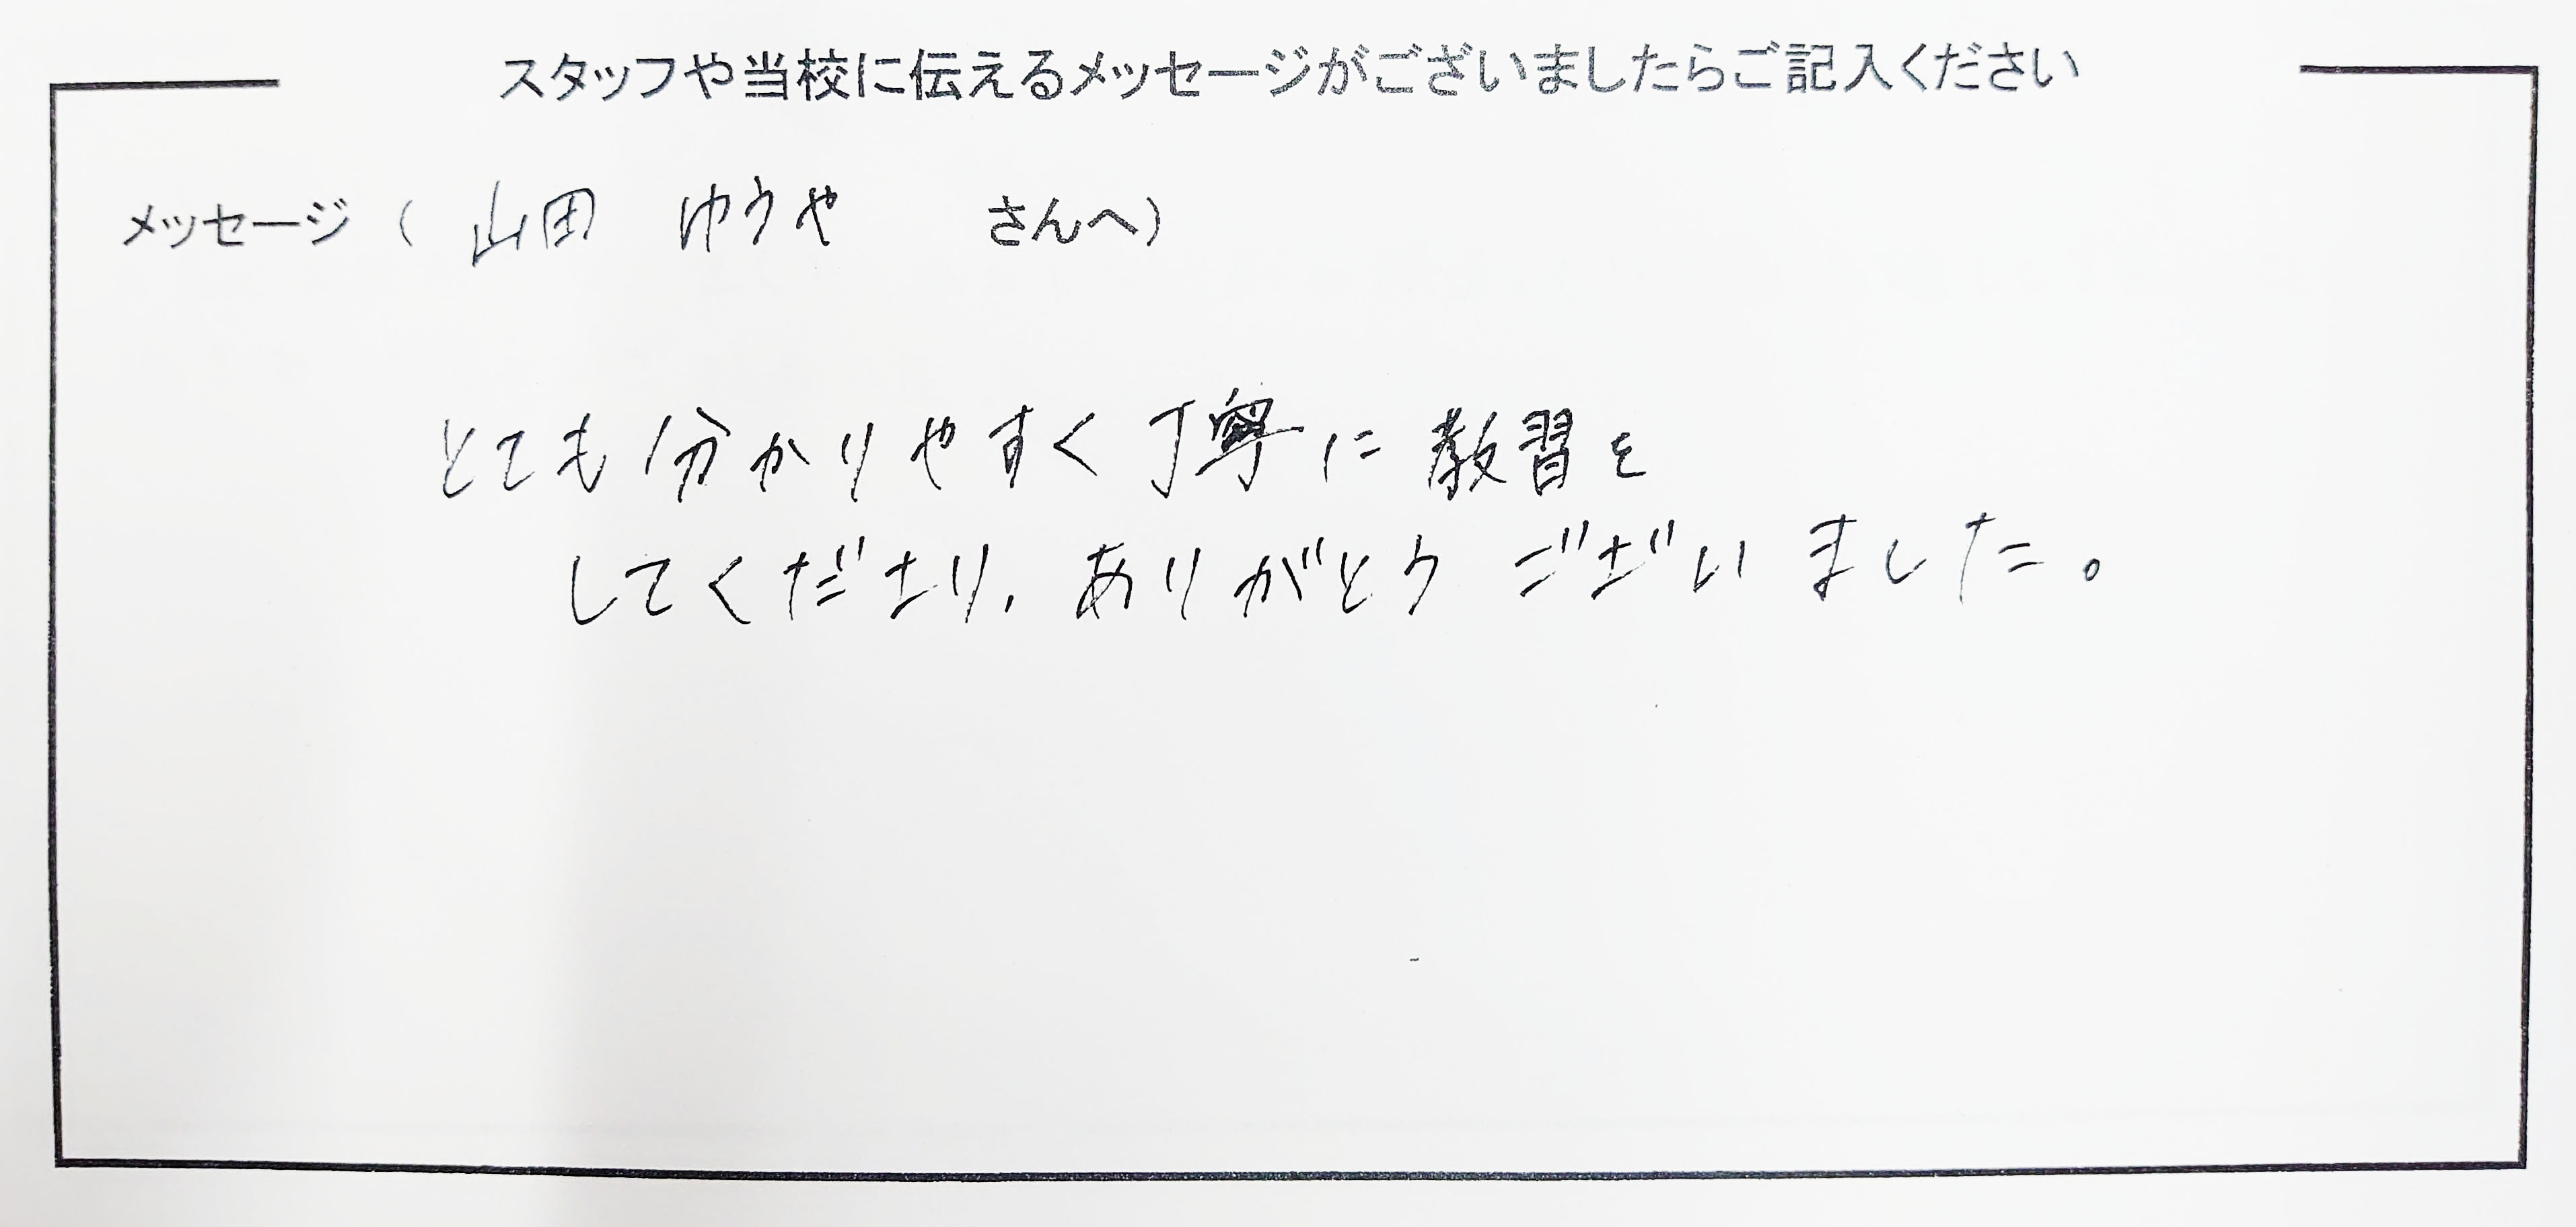 スタッフや当校に伝えるメッセージがございましたらご記入ください
メッセージ ( 山田 ゆうや さんへ)
とても分かりやすく丁寧に教習を
してくださり、ありがとうございました。